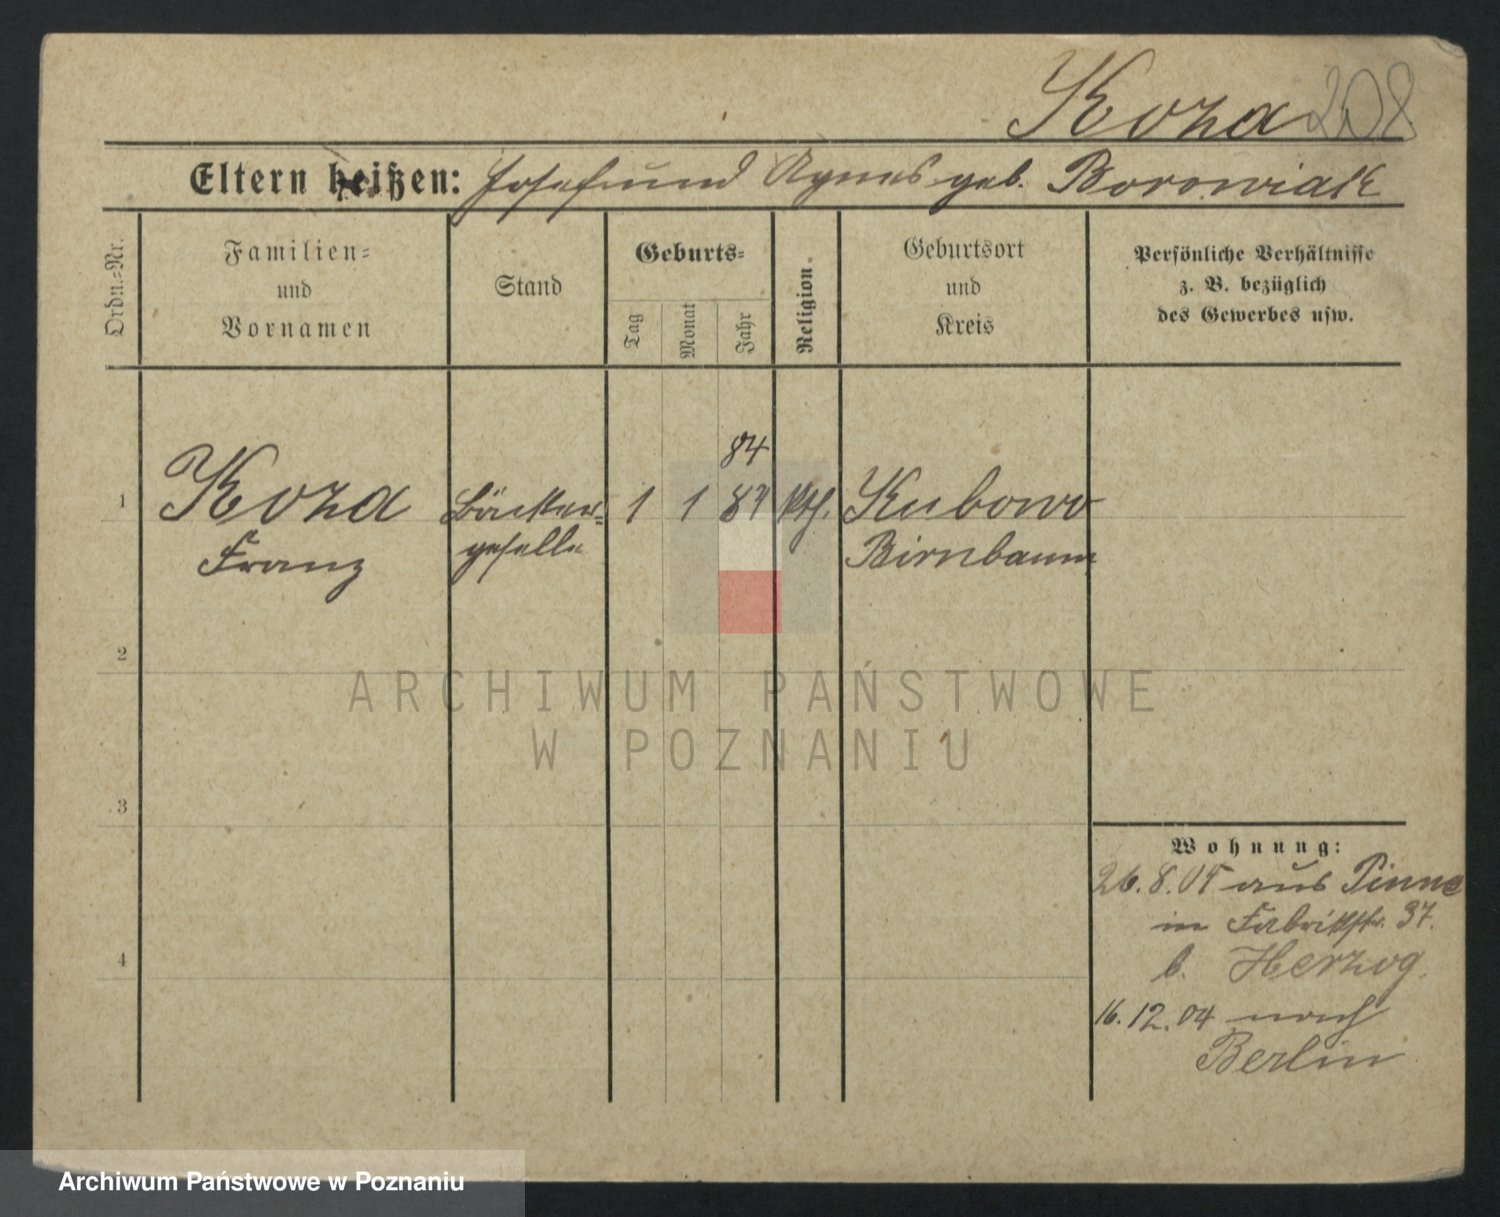 Koza 208
Eltern heißen: Josef und Agnes geb. Borowiak
Ordn.=Nr.
Familien=
und
Vornamen
Stand
Geburts=
Tag
Monat
Jahr
Religion
Geburtsort
und
Kreis
Persönliche Verhältnisse
z. B. bezüglich
des Gewerbes usw.
84
1 Koza Bäcker= 1 1 87 kth. Kubowo
Franz geselle Birnbaum
2
3
4
Wohnung:
26.8.04 aus Pinne
in Fabrikstr. 37.
b. Herzog.
16.12.04 nach
Berlin
ARCHIWUM PAŃSTWOWE
W POZNANIU
Archiwum Państwowe w Poznaniu